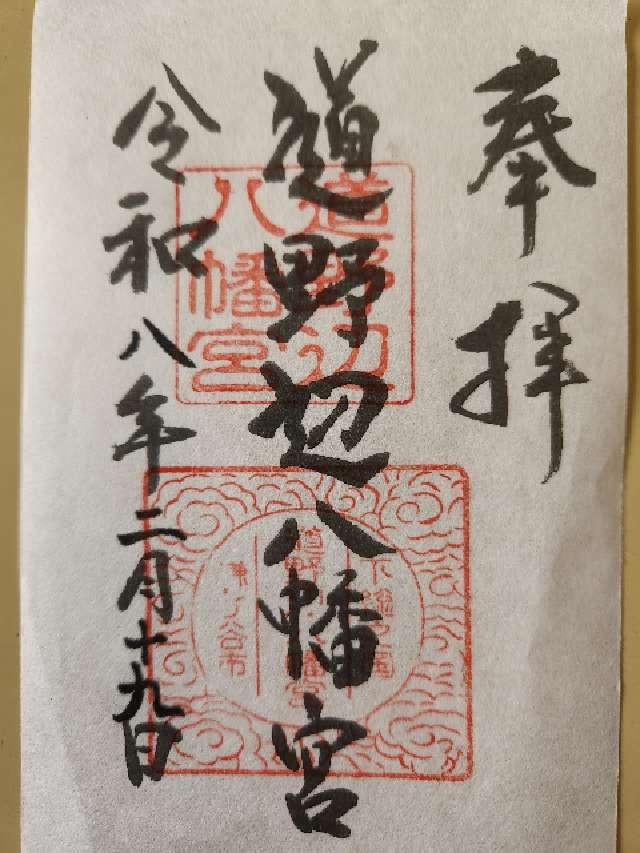 奉拝
道野辺八幡宮
令和八年二月十九日
道野辺
八幡宮
下総国
道野辺八幡宮
鎌ケ谷市